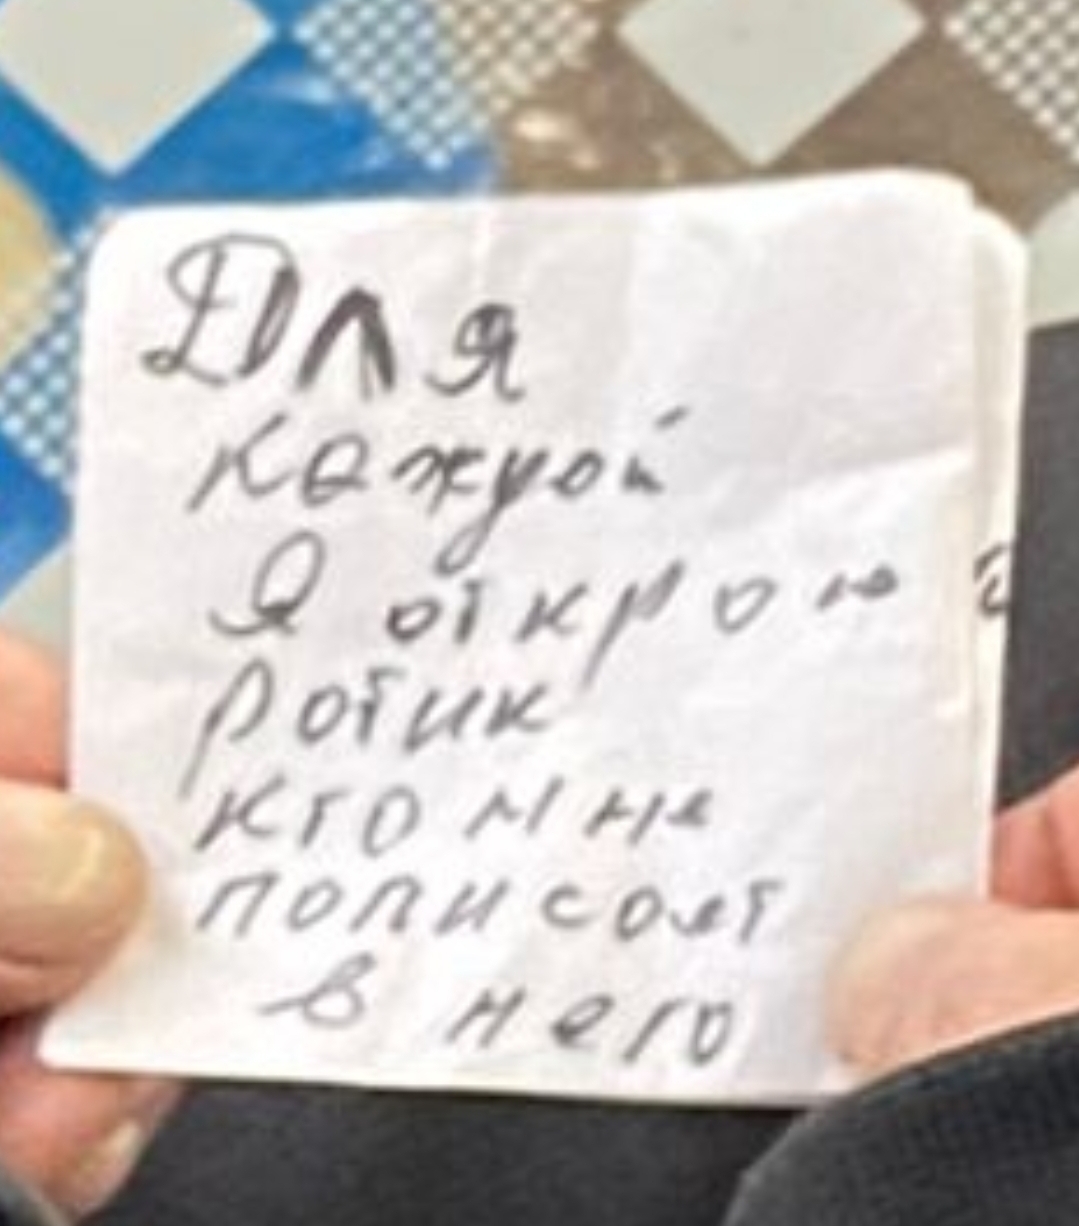 Для
каждой
Я открою
ротик
кто мне
пописает
в него